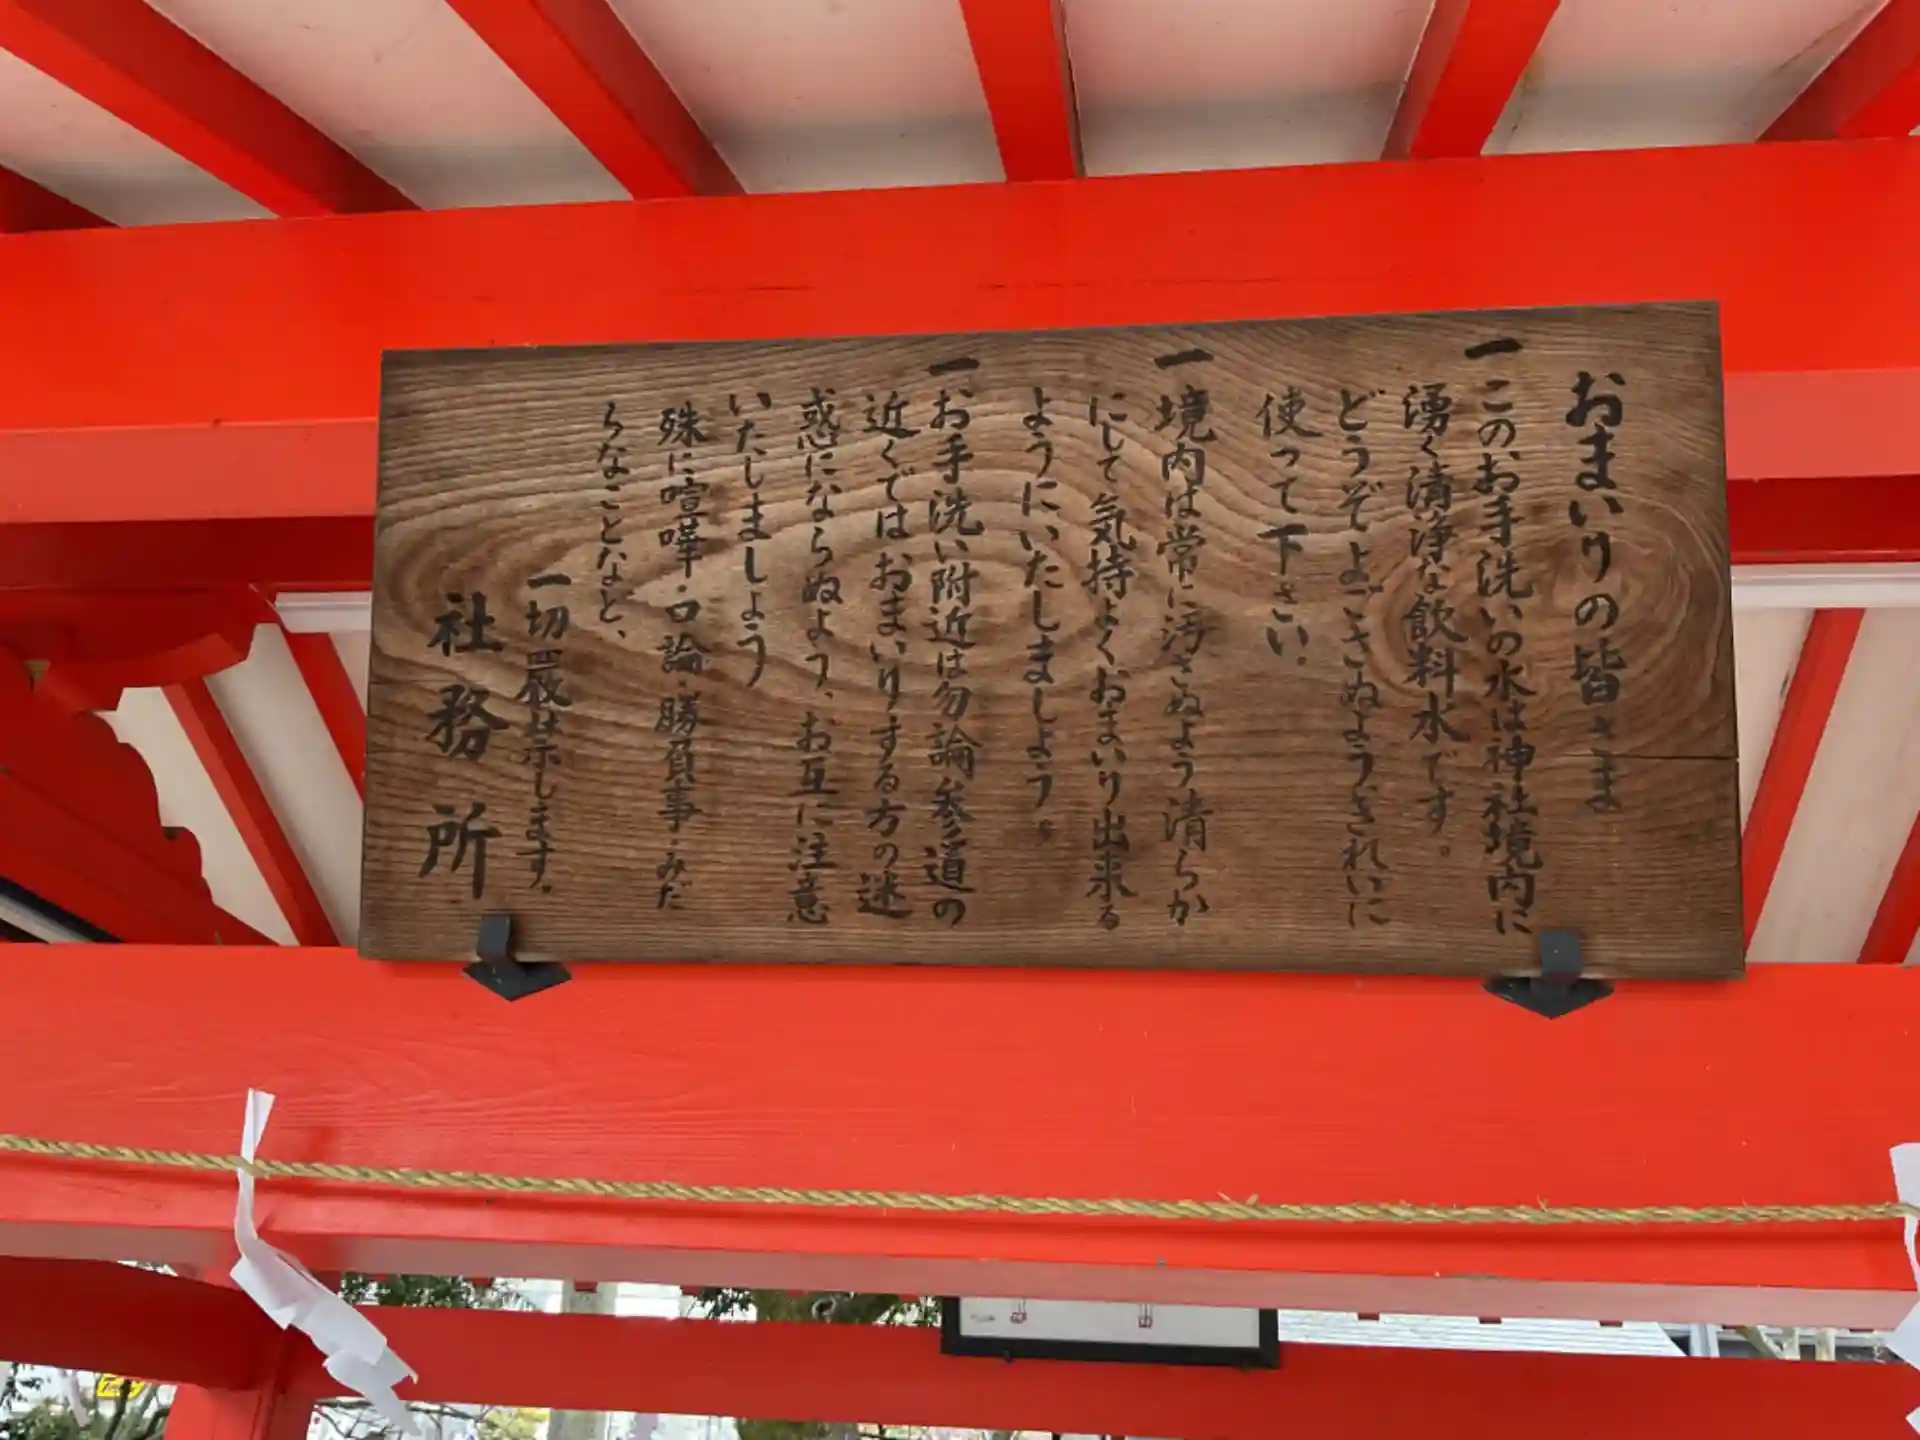 おまいりの皆さま
一 このお手洗いの水は神社境内に
湧く清浄な飲料水です。
どうぞよごさぬようきれいに
使って下さい。
一 境内は常に汚さぬよう清らか
にして気持よくおまいり出来る
ようにいたしましょう。
一 お手洗い附近は勿論参道の
近くではおまいりする方の迷
惑にならぬよう、お互に注意
いたしましょう
殊に喧嘩・口論・勝負事・みだ
らなことなど、
一切厳禁します。
社務所